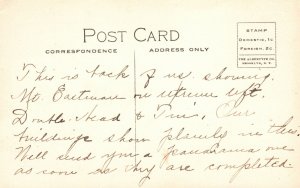 POST CARD
CORRESPONDENCE
ADDRESS ONLY
STAMP
DOMESTIC, 1c
FOREIGN, 2c
THE ALBERTYPE CO.
BROOKLYN, N.Y.
This is back of us showing
Mt. Eastman on extreme left.
Double Head & Our
buildings show plainly in this.
Will send you a panorama one
as soon as they are completed.